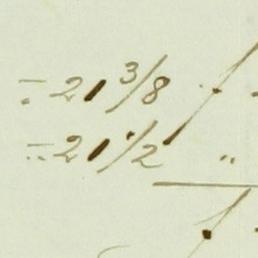 = 21 3/8
= 21 1/2 "